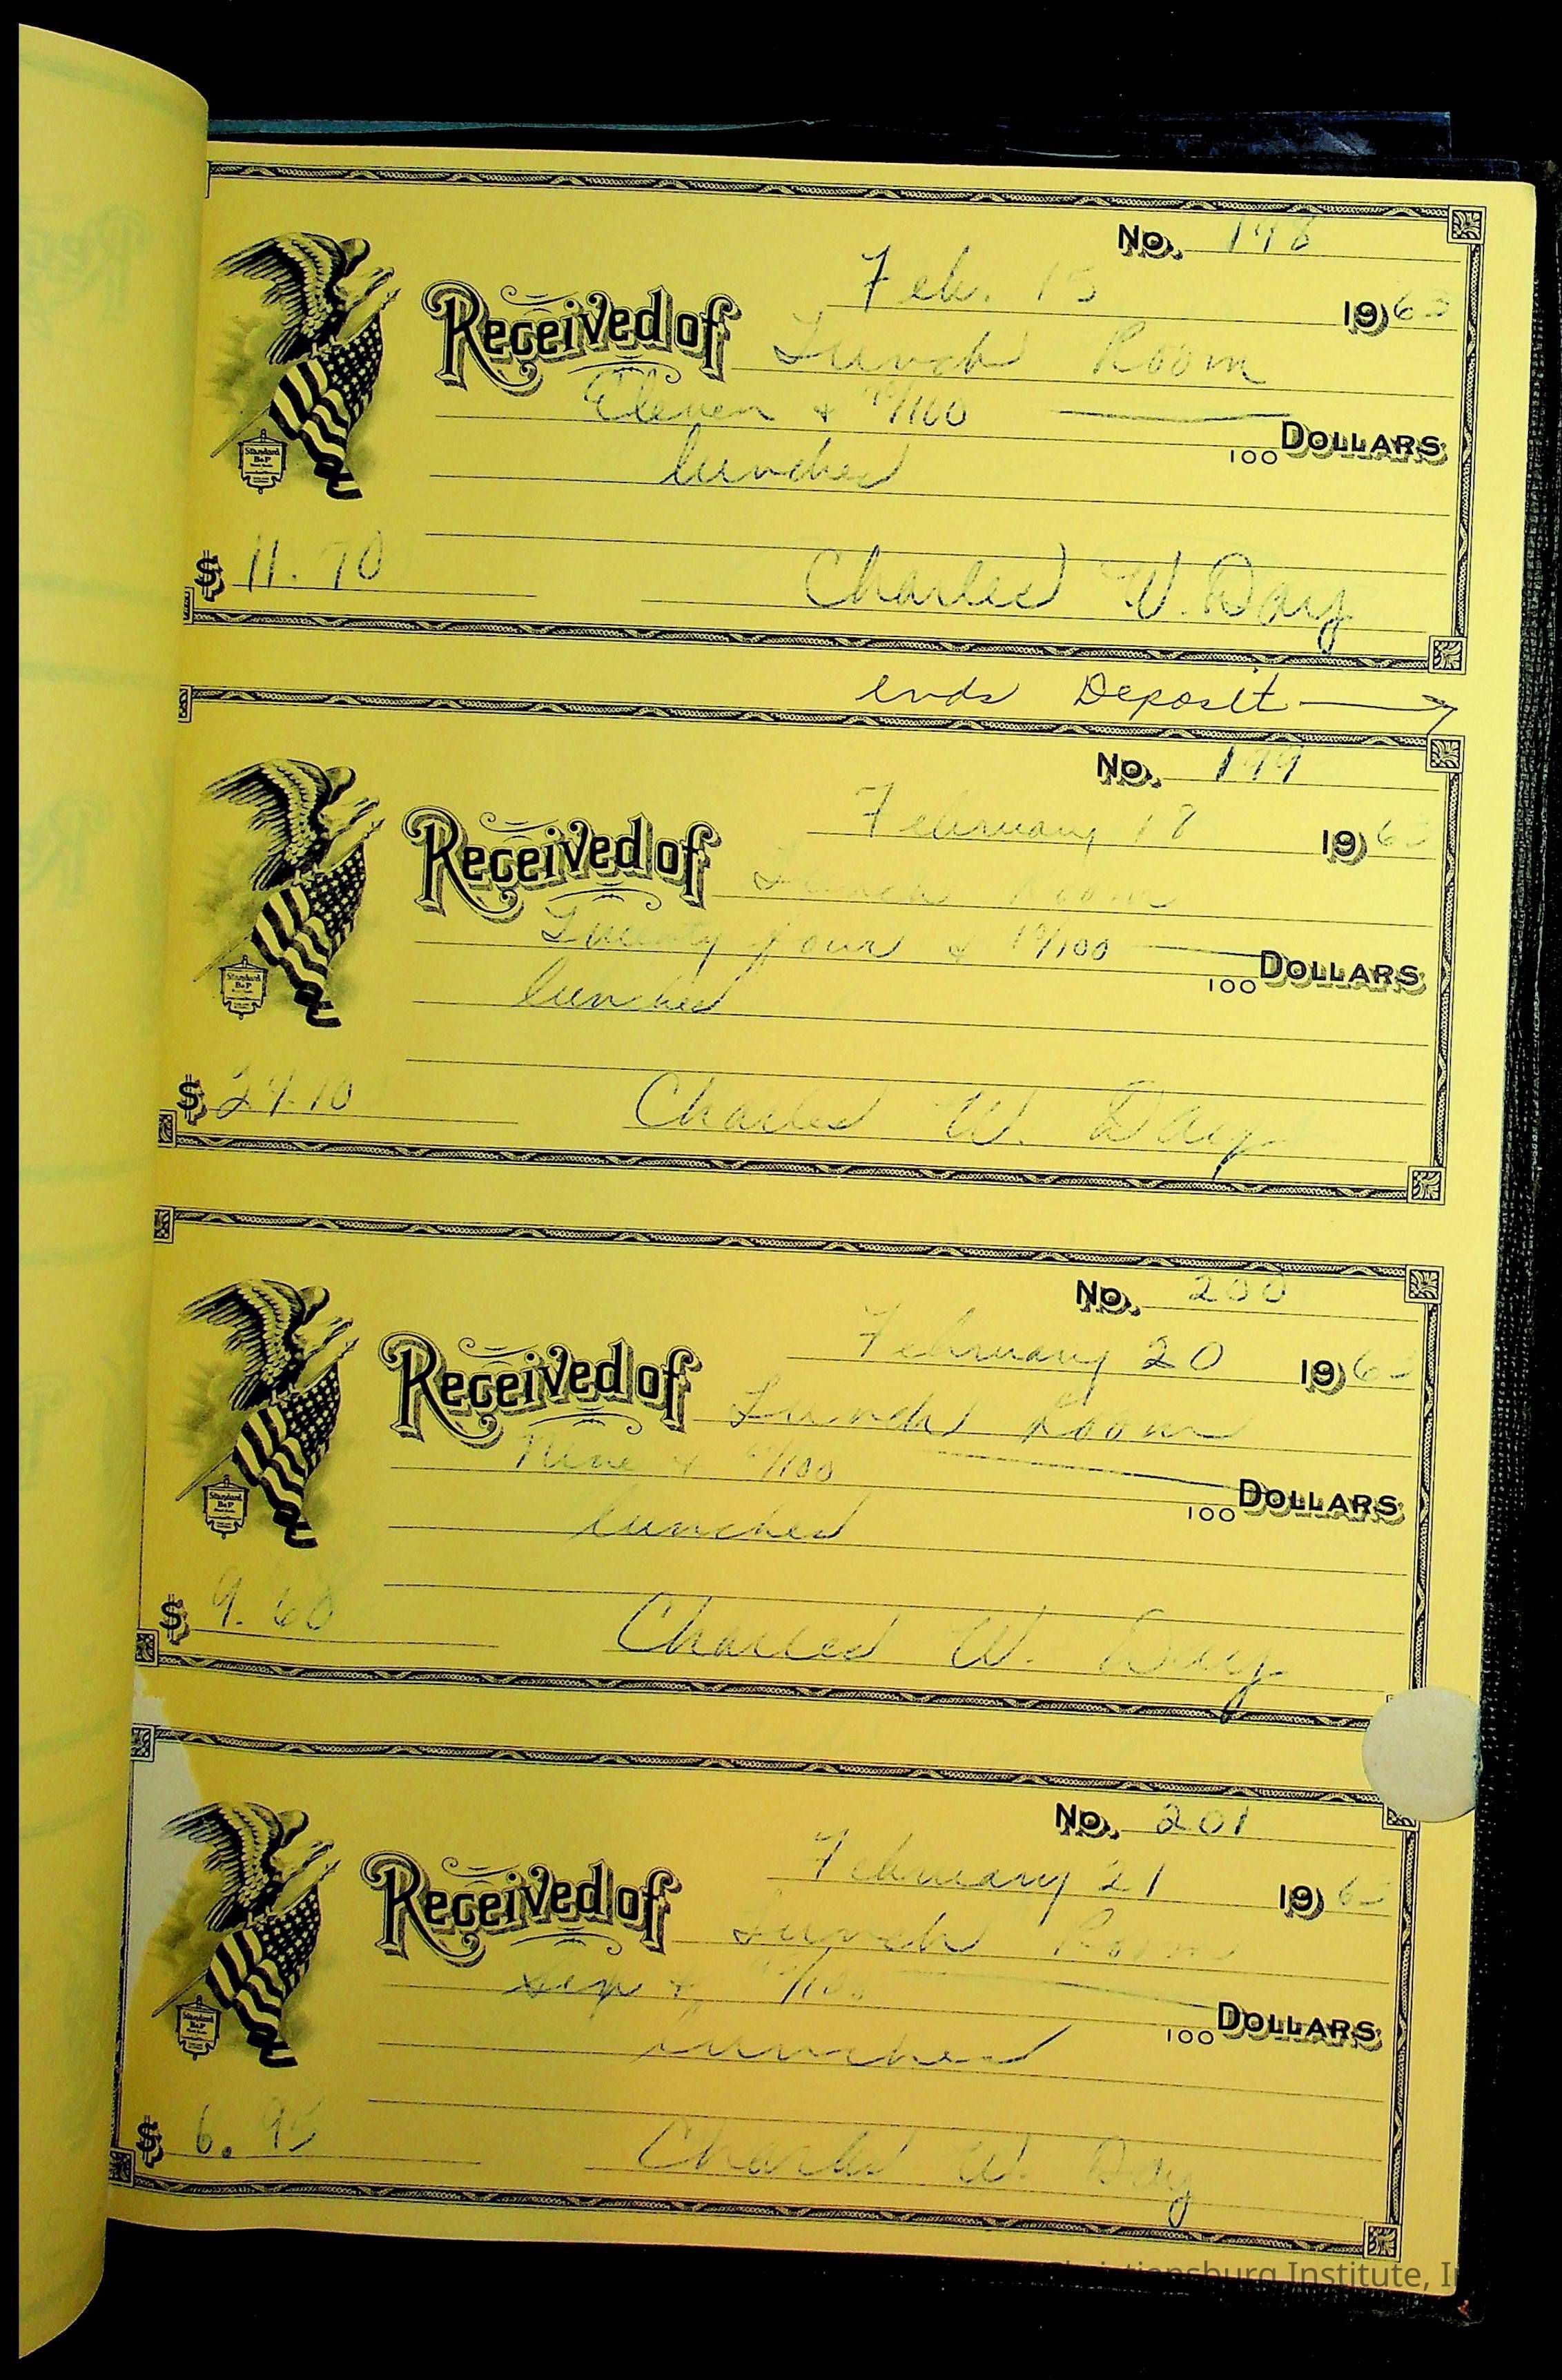 No. 198
Feb. 15 1963
Received of Lunch Room
Eleven & 70/100 DOLLARS
100
lunches
$ 11.70
Charles W. Day
Standard
B&P
ends Deposit
No. 199
February 18 196
Received of Lunch Room
Twenty four & 10/100 DOLLARS
100
lunches
$ 24.10
Charles W. Day
Standard
B&P
No. 200
February 20 196
Received of Lunch Room
Nine & 60/100 DOLLARS
100
lunches
$ 9.60
Charles W. Day
Standard
B&P
No. 201
February 21 196
Received of Lunch Room
Six & /100 DOLLARS
100
lunches
$ 6.95
Charles W. Day
Standard
B&P
Christiansburg Institute, I